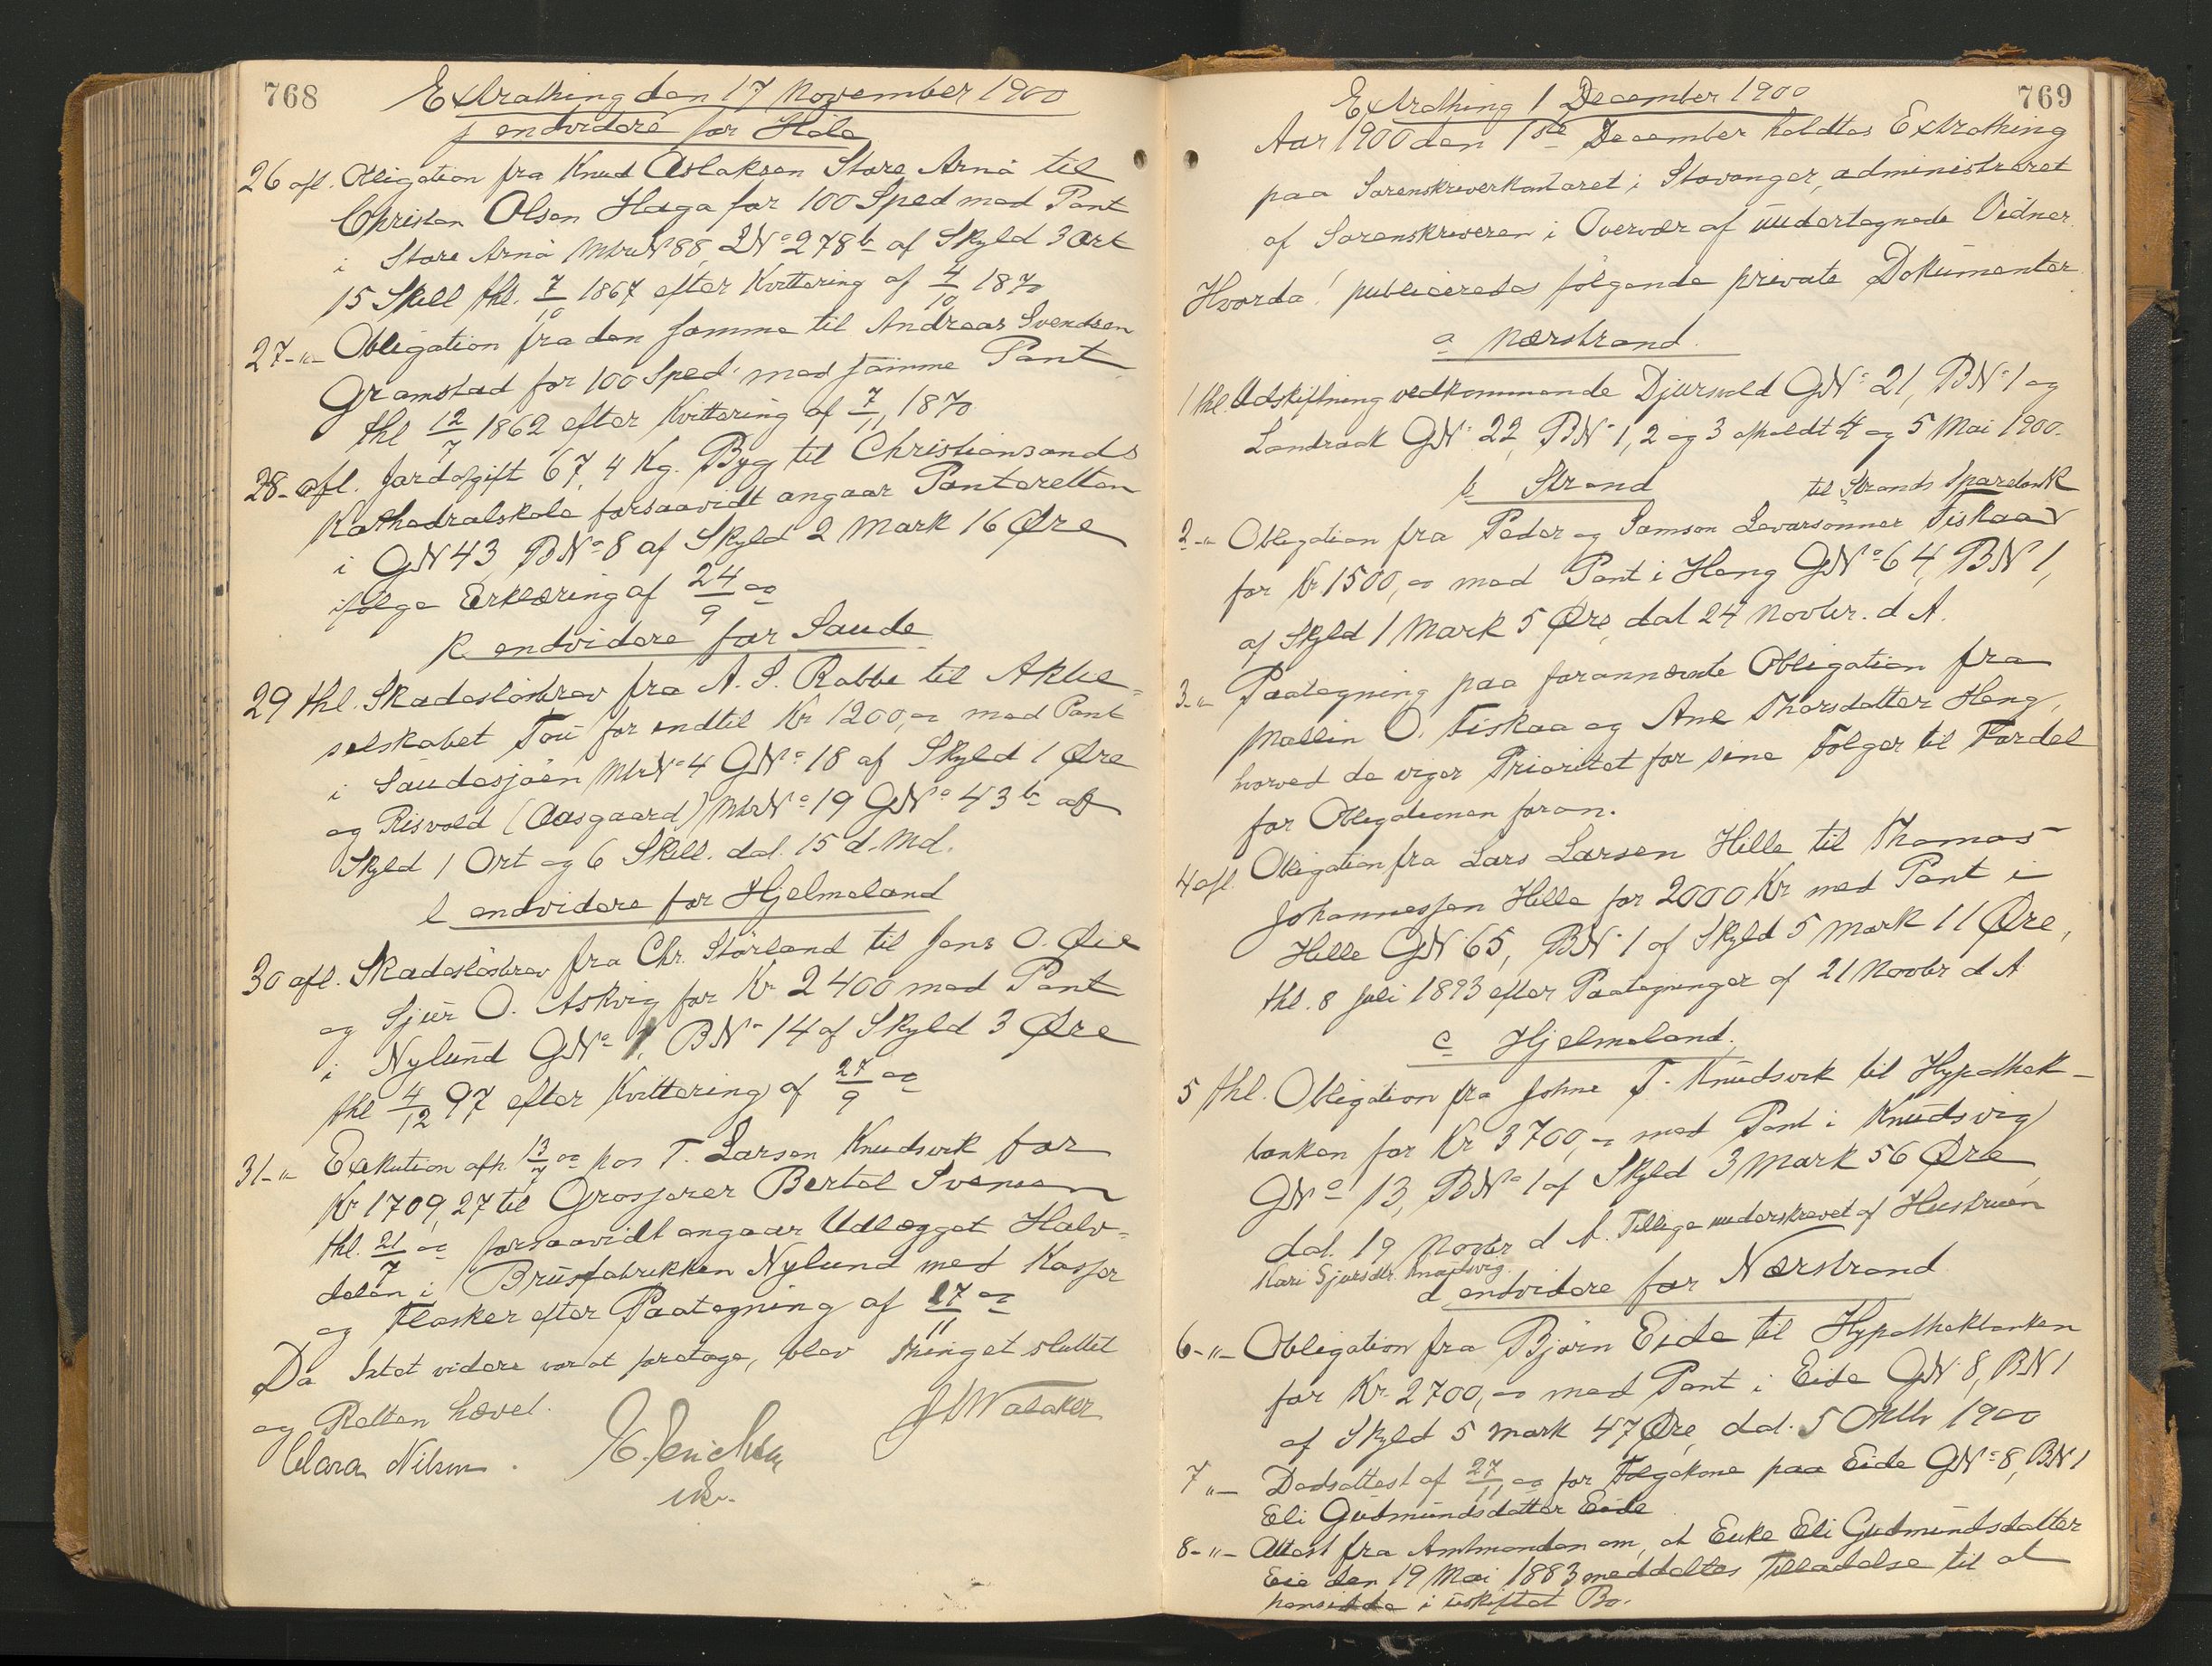 768
Extrathing den 17 November 1900
j endvidere for Høle
26 afl. Obligation fra Knud Aslaksen Store Arnå til
Christen Olsen Haga for 100 Sped med Pant
i Store Arnå MtrN 88, LNo 278b af Skyld 3 Ort
15 Skill thl. 7/10 1867 efter Kvittering af 4/10 1870
27-"- Obligation fra den samme til Andreas Svendsen
Gramstad for 100 Sped. med samme Pant
thl 12/7 1862 efter Kvittering af 7/11 1870
28- afl. Jordafgift 67,4 Kg. Byg til Christiansands
Kathedralskole forsaavidt angaar Panteretten
i GN 43 BNo 8 af Skyld 2 Mark 16 Øre
ifølge Erklæring af 24/9 00
k endvidere for Saude
29 thl. Skadesløsbrev fra A. S. Rabbe til Aktie=
selskabet Tou for indtil Kr 1200,00 med Pant
i Saudesjøen MtrNo 4 GNo 18 af Skyld 1 Øre
og Risvold (Aasgaard) MtrNo 19 GNo 43b af
Skyld 1 Ort og 6 Skill. dat. 15 d. Md.
l endvidere for Hjelmeland
30 afl. Skadesløsbrev fra Chr. Størland til Jens O. Øie
og Sjur O. Askvig for Kr 2400 med Pant
i Nylund GNo 1, BNo 14 af Skyld 3 Øre
thl 4/12 97 efter Kvittering af 27/9 00
31-"- Exekution afh. 13/7 00 hos T. Larsen Knudsvik for
Kr 1709,27 til Grosserer Bertol Svensen
thl. 21/7 00 forsaavidt angaar Udlægget Halv=
delen i Brusfabrikken Nylund med Kasser
og Flasker efter Paategning af 17/11 00
Da Intet videre var at foretage, blev Thinget sluttet
og Retten hævet.
Clara Nilsen.
769
Extrathing 1 December 1900
Aar 1900 den 1ste December holdtes Extrathing
paa Sorenskriverkontoret i Stavanger, administreret
af Sorenskriveren i Overvær af undertegnede Vidner.
Hvorda! publiceredes følgende private Dokumenter
a Nærstrand.
1 thl. Udskiftning vedkommende Djursvold GNo 21, BNo 1 og
Landraak GNo 22, BNo 1, 2 og 3 afholdt 4 og 5 Mai 1900.
b Strand
til Strands Sparebank
2-"- Obligation fra Peder og Samson Sevarsønner Fiskaa
for Kr 1500,00 med Pant i Heng GNo 64, BN 1,
af Skyld 1 Mark 5 Øre, dat 24 Novbr. d A.
3-"- Paategning paa forannævnte Obligation fra
Mallin O. Fiskaa og Ane Thorsdatter Heng,
hvorved de viger Prioritet for sine Folger til Fordel
for Obligationen foran.
4 afl. Obligation fra Lars Larsen Hille til Thomas
Johannessen Hille for 2000 Kr med Pant i
Hille GN 65, BNo 1 af Skyld 5 Mark 11 Øre,
thl. 8 Juli 1893 efter Paategninger af 21 Novbr d A
c Hjelmeland.
5 thl. Obligation fra Johne T. Knudsvik til Hypothek-
banken for Kr 3700,00 med Pant i Knudsvig
GNo 13, BNo 1 af Skyld 3 Mark 56 Øre,
dat. 19 Novbr d A. Tillige underskrevet af Hustruen
Kari Sjursdtr. Knudsvig.
d endvidere for Nærstrand
6-"- Obligation fra Bjørn Eide til Hypothekbanken
for Kr. 2700,00 med Pant i Eide GN 8, BN 1
af Skyld 5 Mark 47 Øre, dat. 5 Oktbr 1900
7 "- Dødsattest af 27/11 00 for Folgekone paa Eide GNo 8, BN 1
Eli Gudmundsdatter Eide
8-"- Attest fra Amtmanden om, at Enke Eli Gudmundsdatter
Eie den 19 Mai 1883 meddeltes Tilladelse til at
hensidde i uskiftet Bo.